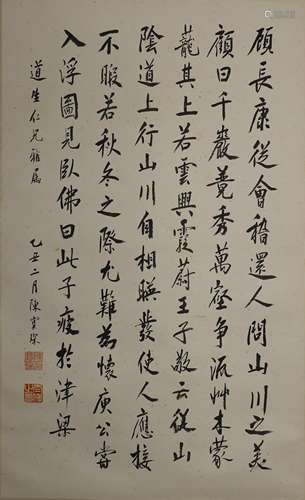 顧長康從會稽還人問山川之美
顧曰千巖競秀萬壑爭流艸木蒙
蘢其上若雲興霞蔚王子敬云從山
陰道上行山川自相暎發使人應接
不暇若秋冬之際尤難為懷庾公嘗
入浮圖見臥佛曰此子疲於津梁
道生仁兄雅屬
乙丑二月陳寶琛